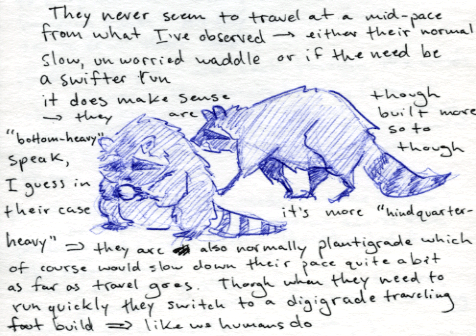 They never seem to travel at a mid-pace
from what I've observed → either their normal
slow, un worried waddle or if the need be
a swifter run
it does make sense though
→ they are built more
"bottom-heavy" so to
speak, though
I guess in
their case it's more "hindquarter-
heavy" ⇒ they are also normally plantigrade which
of course would slow down their pace quite a bit
as far as travel goes. Though when they need to
run quickly they switch to a digigrade traveling
foot build ⇒ like we humans do